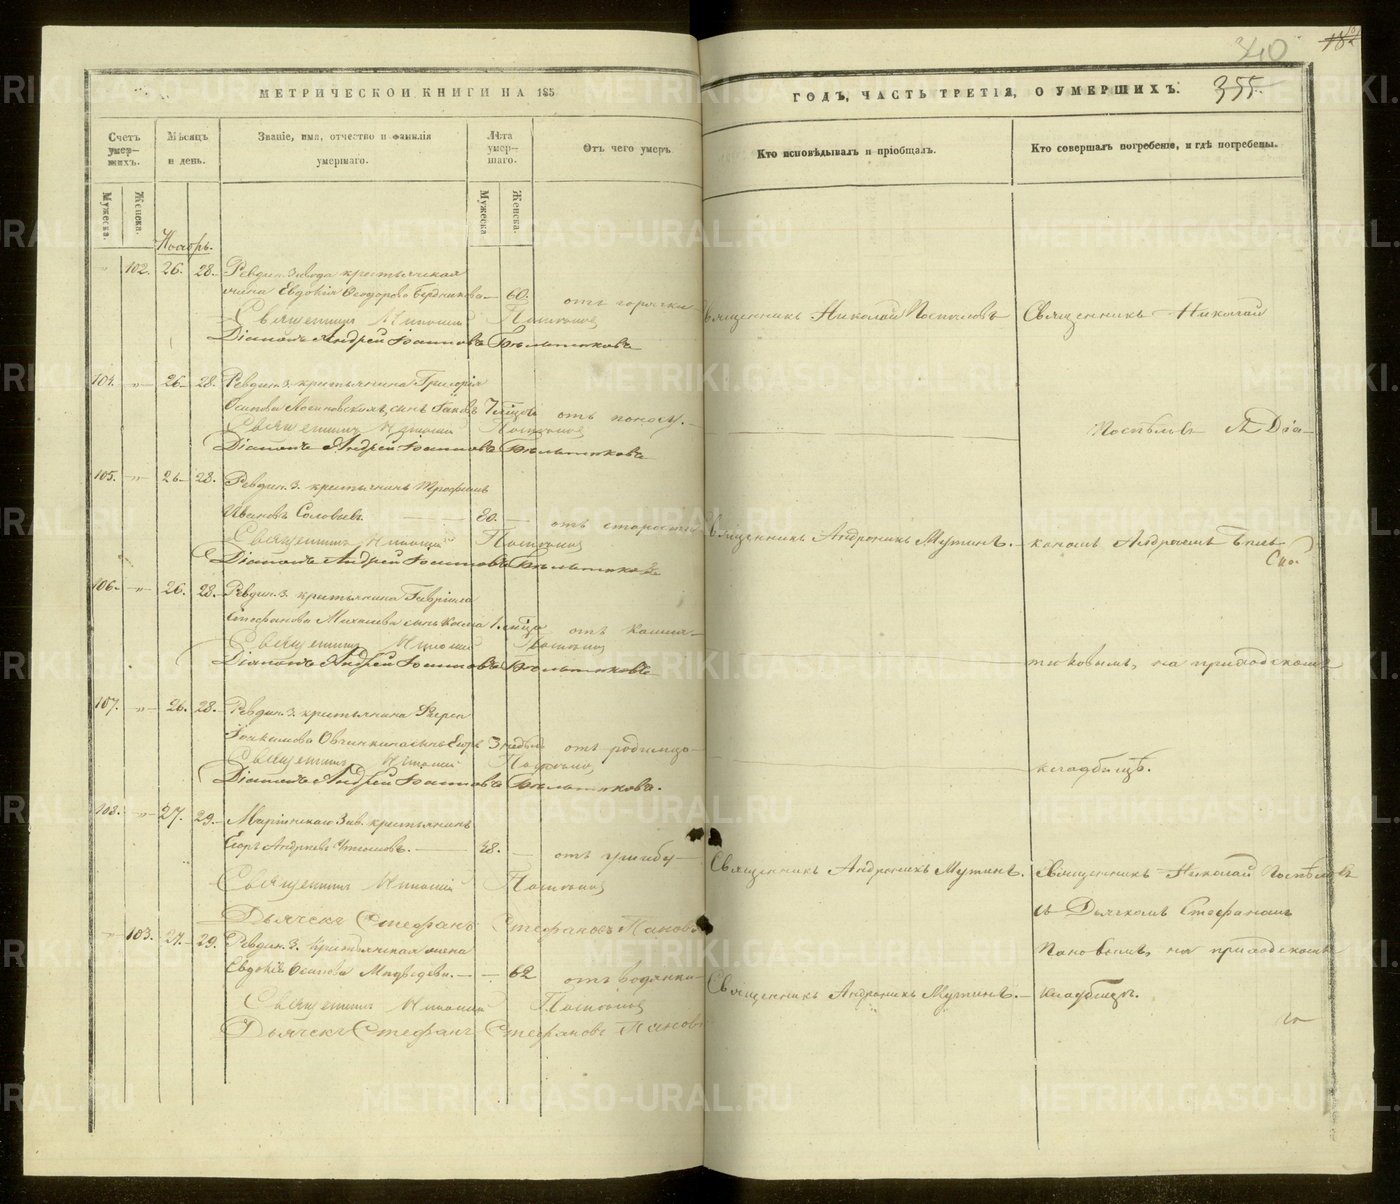 340
355.
МЕТРИЧЕСКОЙ КНИГИ НА 185
ГОДЪ, ЧАСТЬ ТРЕТІЯ, О УМЕРШИХЪ.
Счетъ умер-
шихъ.
Мѣсяцъ
и день.
Званіе, имя, отчество и фамилія
умершаго.
Лѣта
умер-
шаго.
Отъ чего умеръ
Кто исповѣдывалъ и пріобщалъ.
Кто совершалъ погребеніе, и гдѣ погребены.
Мужеска.
Женска.
Мужеска
Женска.
Ноябрь.
102. 26. 28. Ревдин. Завода крестьянская
жена Евдокія Ѳеодорова 60. отъ горячки
Священникъ Николай Поспѣловъ
Священникъ Николай
Священникъ Николай Поспѣловъ
Діаконъ Андрей Іоанновъ Бѣльтюковъ
104. 26. 28. Ревдин. З. крестьянина Григорія
Осипова сынъ Іаковъ 7 мѣсяц. отъ поносу.
Поспѣловъ съ Діа-
Священникъ Николай Поспѣловъ
Діаконъ Андрей Іоанновъ Бѣльтюковъ
105. 26. 28. Ревдин. З. крестьянинъ Трофимъ
Ивановъ Соловьевъ. 80. отъ старости
Священникъ Андроникъ Мутинъ.
кономъ Андреемъ Бѣль-
Священникъ Николай Поспѣловъ
Діаконъ Андрей Іоанновъ Бѣльтюковъ
106. 26. 28. Ревдин. З. крестьянина Гавріила
Стефанова Михалева сынъ Косма 1 мѣсяца отъ кашля
Священникъ Николай Поспѣловъ
Діаконъ Андрей Іоанновъ Бѣльтюковъ
тюковымъ, на приходскомъ
107. 26. 28. Ревдин. З. крестьянина
Іоакимова Овчинникова сынъ Егоръ 3 недѣль отъ родимца
кладбищѣ.
Священникъ Николай Поспѣловъ
Діаконъ Андрей Іоанновъ Бѣльтюковъ.
108. 27. 29. Маріинскаго Зав. крестьянинъ
Егоръ Андреевъ 48. отъ ушибу
Священникъ Андроникъ Мутинъ.
Священникъ Николай Поспѣловъ
Священникъ Николай Поспѣловъ
съ Дьячкомъ Стефаномъ
Дьячекъ Стефанъ Стефановъ Пановъ
103. 27. 29. Ревдин. З. крестьянская жена
Пановымъ, на приходскомъ
Евдокія Осипова Медведева. 62 отъ водянки
Священникъ Андроникъ Мутинъ.
кладбищѣ.
Священникъ Николай Поспѣловъ
Дьячекъ Стефанъ Стефановъ Пановъ
METRIKI.GASO-URAL.RU